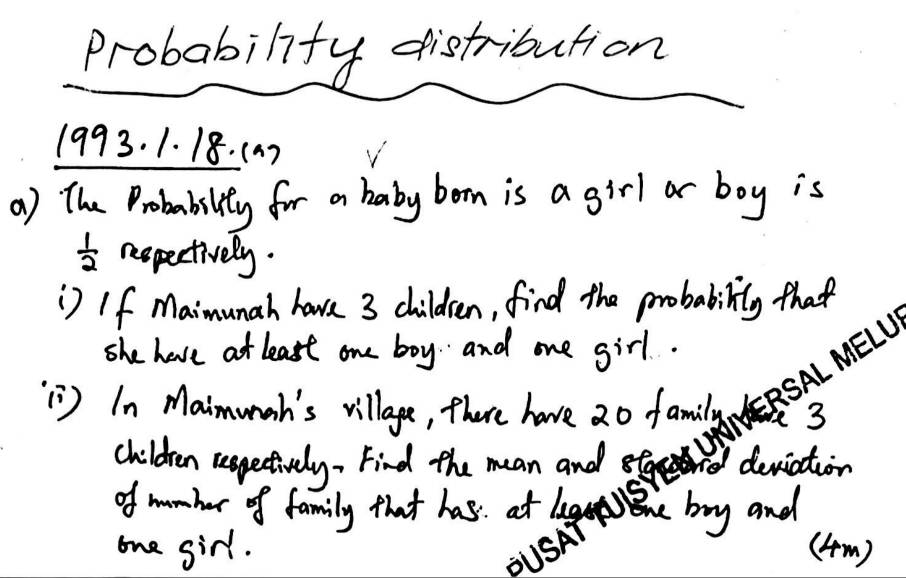 Probability distribution
1993.1.18.(a)
a) The Probability for a baby born is a girl or boy is
1/2 respectively.
i) If Maimunah have 3 children, find the probability that
she have at least one boy and one girl.
ii) In Maimunah's village, there have 20 family have 3
children respectively. Find the mean and standard deviation
of number of family that has at least one boy and
one girl.
(4m)
PUSAT TUISYEN UNIVERSAL MELUR